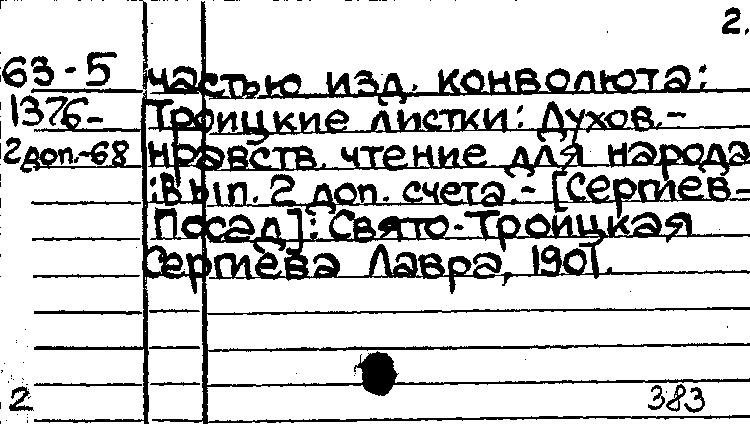 2.
63-5 частью изд. конволюта:
1376- Троицкие листки: Духов.-
2доп.-68 нравств. чтение для народа
:Вып. 2 доп. счета.- [Сергиев-
Посад]: Свято-Троицкая
Сергиева Лавра, 1901.
2 383